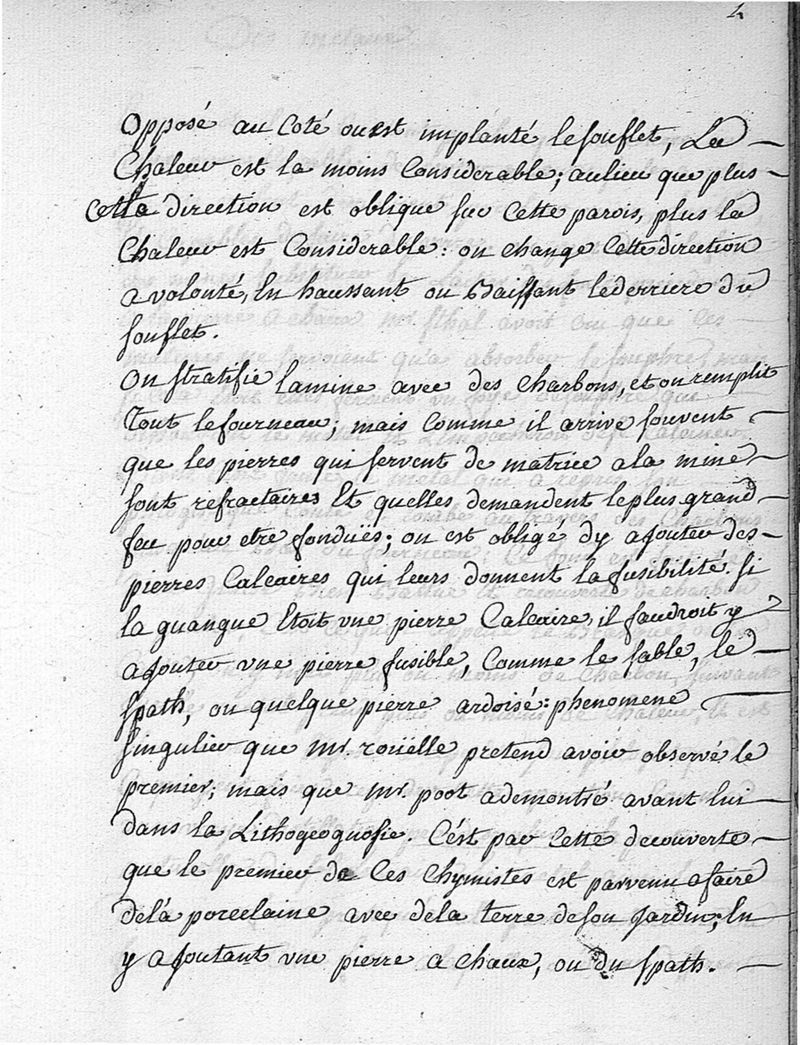 2
opposé au Coté ou est implanté le souflet, La
Chaleur est la moins Considerable; aulieu que plus
cette direction est oblique sur Cette parois, plus la
Chaleur est Considerable: on change Cette direction
a volonté, En haussant ou Baissant le derriere du
souflet.
on stratifie lamine avec des Charbons, et on remplit
tout le fourneau; mais Comme il arrive souvent
que les pierres qui servent de matrice a la mine
sont refractaires Et quelles demandent le plus grand
feu pour etre fonduës; on est obligé dy ajouter des
pierres Calcaires qui leurs donnent la fusibilité. si
la guangue Etoit vne pierre Calcaire, il faudroit y
ajouter vne pierre fusible, Comme le sable, le
spath, ou quelque pierre ardoisé: phenomene
singulier que mr. roüelle pretend avoir observé le
premier; mais que mr. poot a demontré avant lui
dans la Lithogeognosie. C'ést par Cette decouverte
que le premier de Ces Chymistes est parvenu afaire
delà porcelaine avec dela terre deson Jardin; En
y ajoutant vne pierre a chaux, ou du spath.